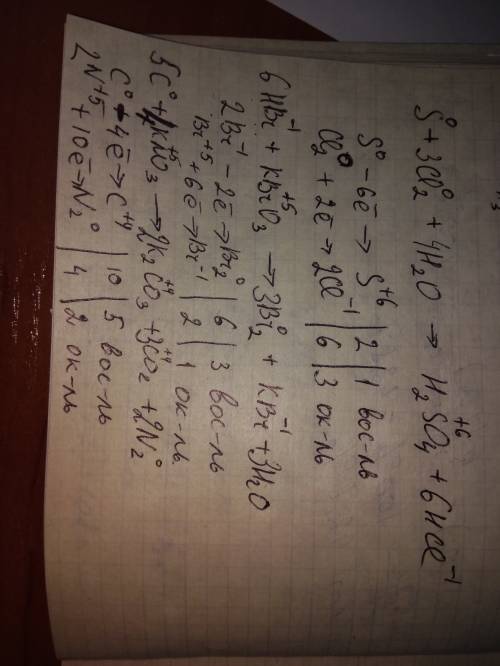 S⁰ + 3Cl₂⁰ + 4H₂O → H₂S⁺⁶O₄ + 6HCl⁻¹
S⁰ - 6ē → S⁺⁶ | 2 | 1 вос-ль
Cl₂⁰ + 2ē → 2Cl⁻¹ | 6 | 3 ок-ль
6HBr⁻¹ + KBr⁺⁵O₃ → 3Br₂⁰ + KBr⁻¹ + 3H₂O
2Br⁻¹ - 2ē → Br₂⁰ | 6 | 3 вос-ль
Br⁺⁵ + 6ē → Br⁻¹ | 2 | 1 ок-ль
5C⁰ + 4KN⁺⁵O₃ → 2K₂C⁺⁴O₃ + 3C⁺⁴O₂ + 2N₂⁰
C⁰ - 4ē → C⁺⁴ | 10 | 5 вос-ль
2N⁺⁵ + 10ē → N₂⁰ | 4 | 2 ок-ль